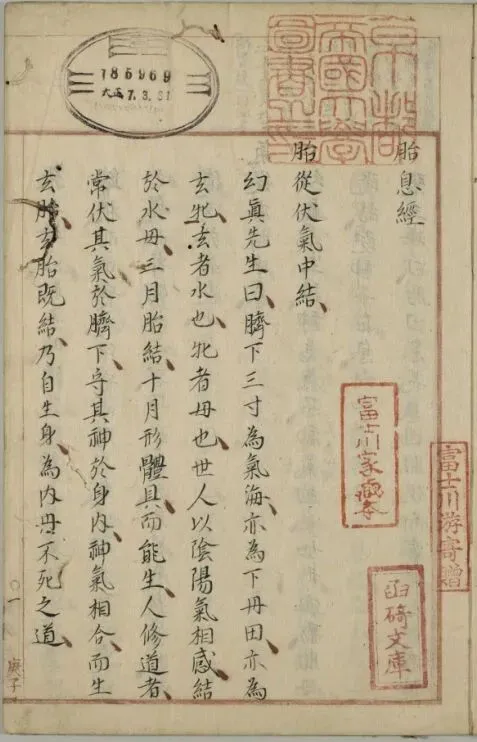 京都
帝國大學
圖書之印
185969
大正7.3.31
富士川游寄贈
胎息經
富士川家藏本
碕文庫
胎從伏氣中結、
幻眞先生曰、臍下三寸為氣海、亦為下丹田、亦為
玄牝、玄者水也、牝者母也、世人以陰陽氣相感結
於水母、三月胎結、十月形體具、而能生人、修道者、
常伏其氣於臍下、守其神於身内、神氣相合、而生
玄胎、玄胎既結、乃自生身、為内丹不死之道、
〇一
庚子